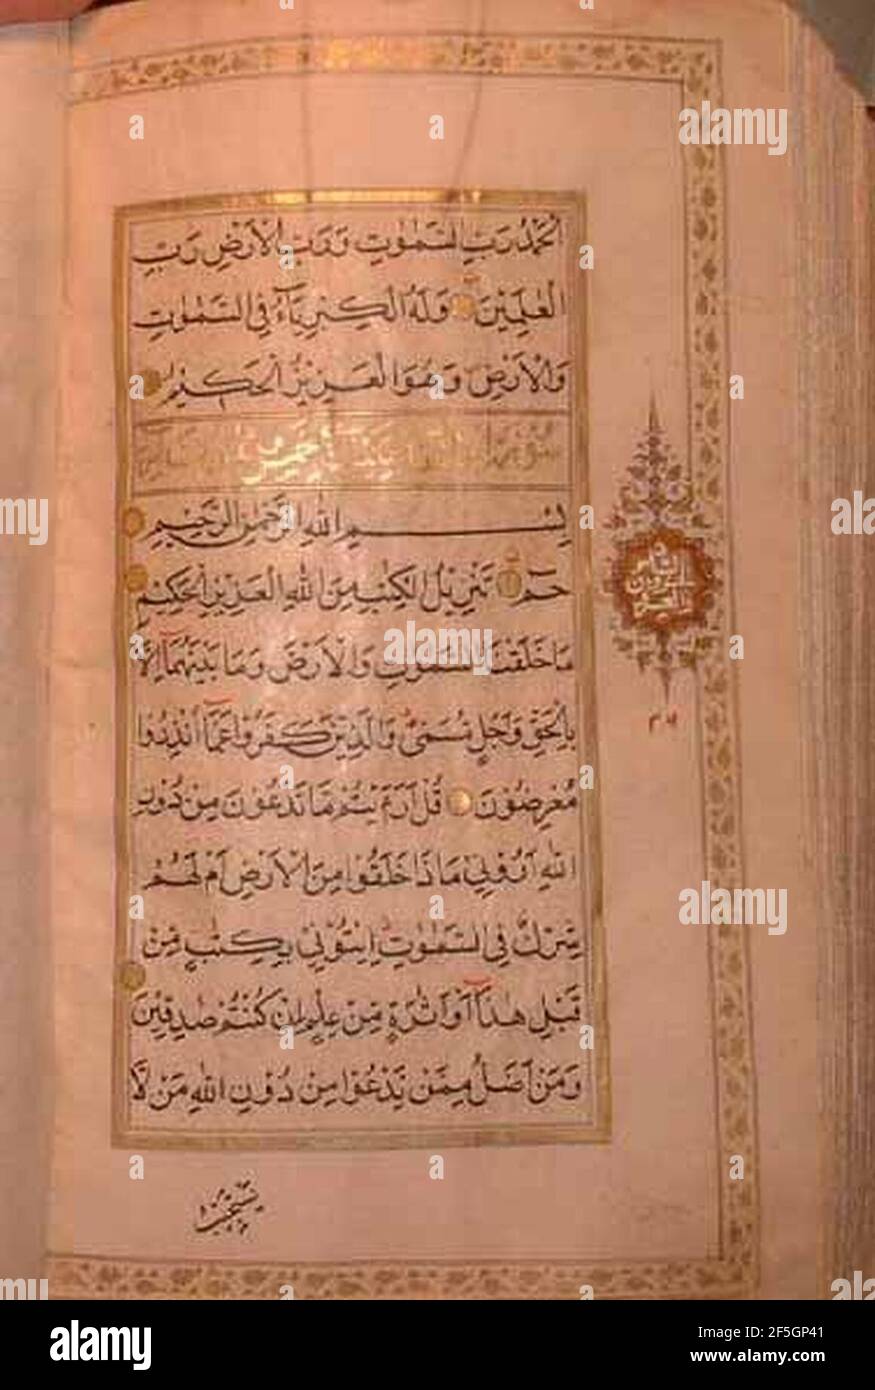 الْحَمْدُ رَبِّ السَّمٰوٰتِ وَرَبِّ الْاَرْضِ رَبِّ
الْعٰلَمِيْنَ وَلَهُ الْكِبْرِيَآءُ فِي السَّمٰوٰتِ
وَالْاَرْضِ وَهُوَ الْعَزِيْزُ الْحَكِيْمُ
سورة
بِسْمِ اللهِ الرَّحْمٰنِ الرَّحِيْمِ
حٰمٓ تَنْزِيْلُ الْكِتٰبِ مِنَ اللهِ الْعَزِيْزِ الْحَكِيْمِ
مَا خَلَقْنَا السَّمٰوٰتِ وَالْاَرْضَ وَمَا بَيْنَهُمَآ اِلَّا
بِالْحَقِّ وَاَجَلٍ مُّسَمًّى وَالَّذِيْنَ كَفَرُوْا عَمَّآ اُنْذِرُوْا
مُعْرِضُوْنَ قُلْ اَرَءَيْتُمْ مَا تَدْعُوْنَ مِنْ دُوْنِ
اللهِ اَرُوْنِيْ مَاذَا خَلَقُوْا مِنَ الْاَرْضِ اَمْ لَهُمْ
شِرْكٌ فِي السَّمٰوٰتِ اِيْتُوْنِيْ بِكِتٰبٍ مِّنْ
قَبْلِ هٰذَآ اَوْ اَثٰرَةٍ مِّنْ عِلْمٍ اِنْ كُنْتُمْ صٰدِقِيْنَ
وَمَنْ اَضَلُّ مِمَّنْ يَّدْعُوْا مِنْ دُوْنِ اللهِ مَنْ لَّا
يستجيب
٢٦
alamy
a
Image ID: 2F5GP41
www.alamy.com